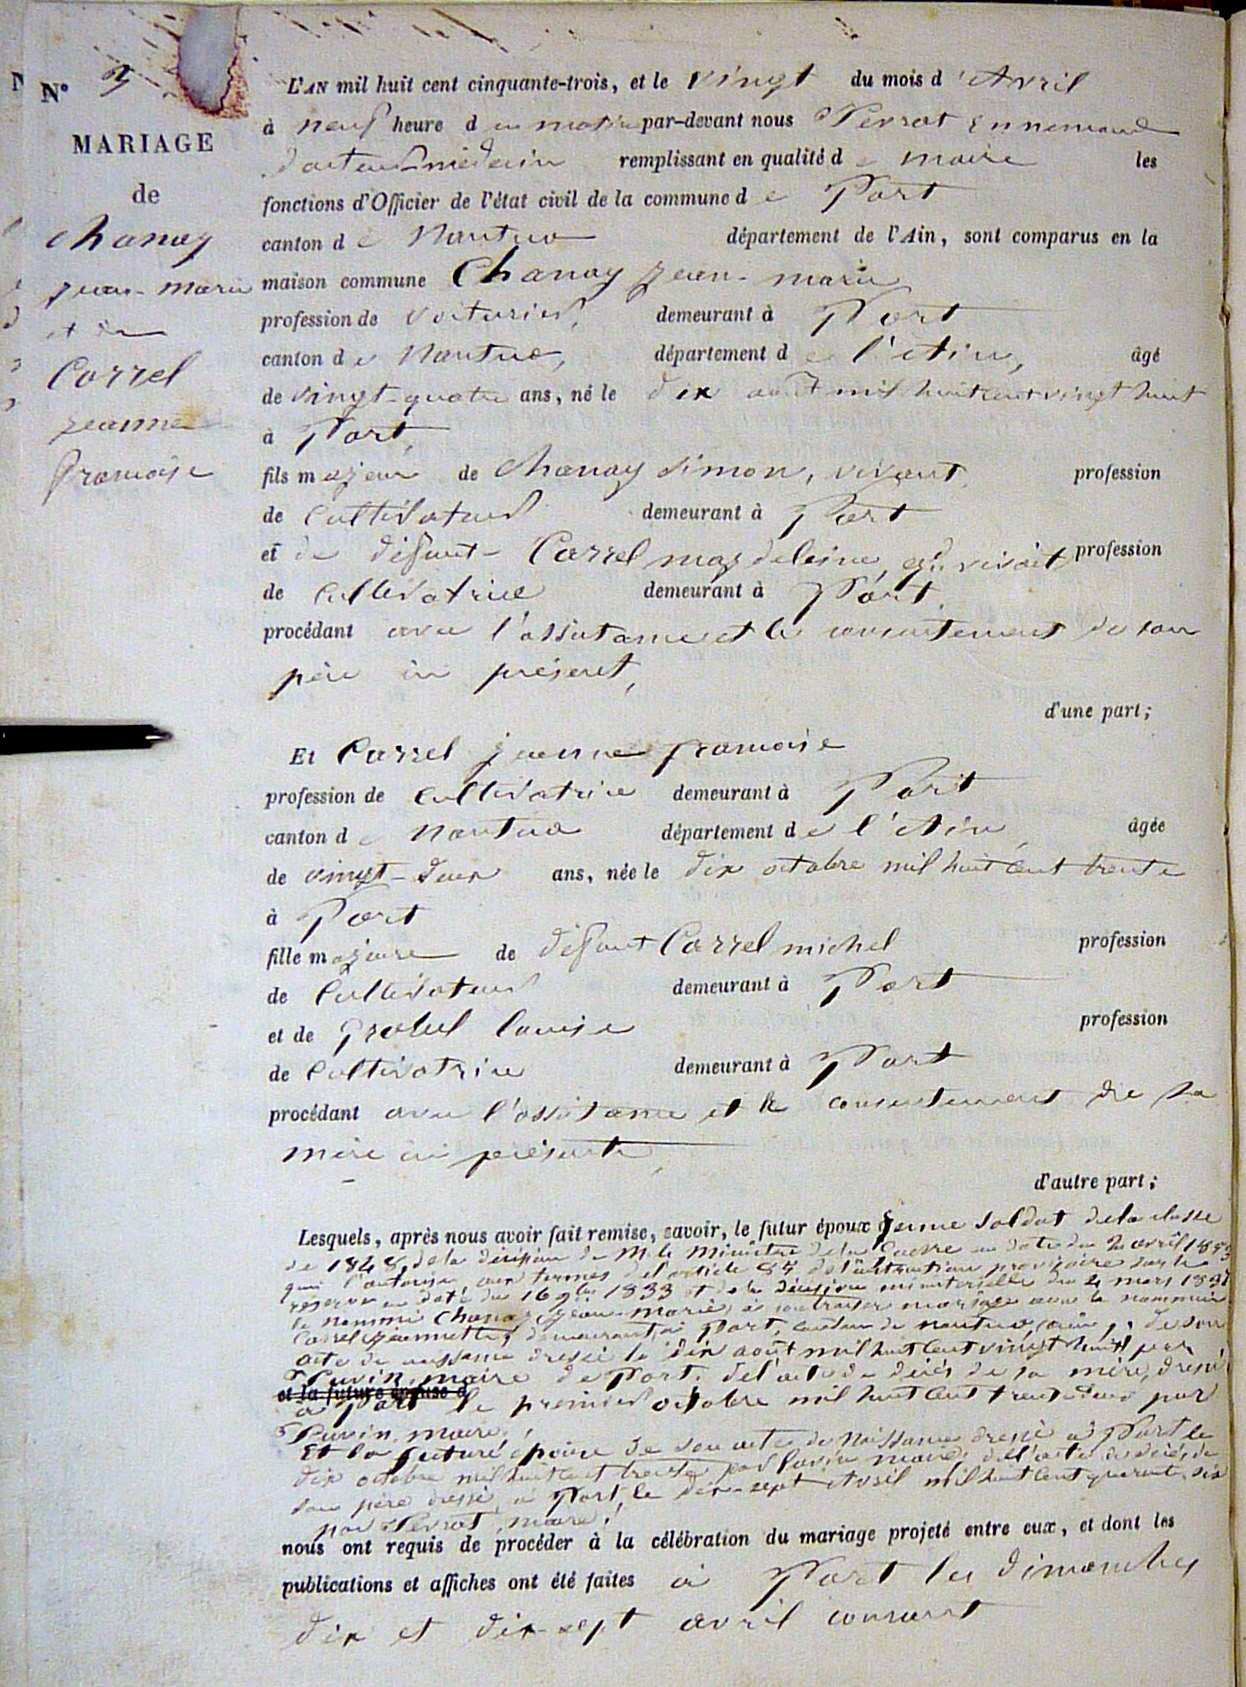 N° 3
MARIAGE
de
Chanay
jean-marie
et de
Carrel
jeanne
françoise
L'AN mil huit cent cinquante-trois, et le vingt du mois d'Avril
à neuf heure d u matin par-devant nous Perrot Ennemond
docteur médecin remplissant en qualité d e maire les
fonctions d'Officier de l'état civil de la commune d e Port
canton d e Nantua département de l'Ain, sont comparus en la
maison commune Chanay jean-marie
profession de voiturier, demeurant à Port
canton d e Nantua, département d e l'Ain, âgé
de vingt-quatre ans, né le dix août mil huit cent vingt huit
à Port
fils m ajeur de Chanay Simon, vivant profession
de Cultivateur demeurant à Port
et de défunte Carrel magdeleine, qu vivait profession
de Cultivatrice demeurant à Port
procédant avec l'assistance et le consentement de son
père ici présent,
d'une part;
Et Carrel jeanne françoise
profession de cultivatrice demeurant à Port
canton d e Nantua département d e l'Ain âgée
de vingt-deux ans, née le dix octobre mil huit cent trente
à Port
fille m ajeure de défunt Carrel michel profession
de Cultivateur demeurant à Port
et de louise profession
de Cultivatrice demeurant à Port
procédant avec l'assistance et le consentement de sa
mère ici présente
d'autre part;
Lesquels, après nous avoir fait remise, savoir, le futur époux jeune soldat de la classe
de 1848, de la décision de M. le Ministre de la Guerre en date du 2 avril 1853
qui l'autorise, aux termes de l'article 84 de l'instruction provisoire sur la
réserve en date du 16 9bre 1833 et de la décision ministérielle du 4 mars 183
le nommé Chanay jean-marie, à contracter mariage avec la nommée
Carrel jeannette, demeurant à Port, canton de nantua (ain), de son
acte de naissance dressé le dix août mil huit cent vingt huit par
Pavin, maire de Port. de l'acte de décès de sa mère, dressé
et la future épouse d
à Port le premier octobre mil huit cent trente deux par
Pavin, maire,
Et la future épouse de son acte de Naissance dressé à Port le
dix octobre mil huit cent trente, par Pavin maire, de l'acte de décès de
son père dressé à Port, le dix-sept Avril mil huit cent quarante six
par Perrot, maire,
nous ont requis de procéder à la célébration du mariage projeté entre eux, et dont les
publications et affiches ont été faites à Port les dimanches
dix et dix-sept avril courant